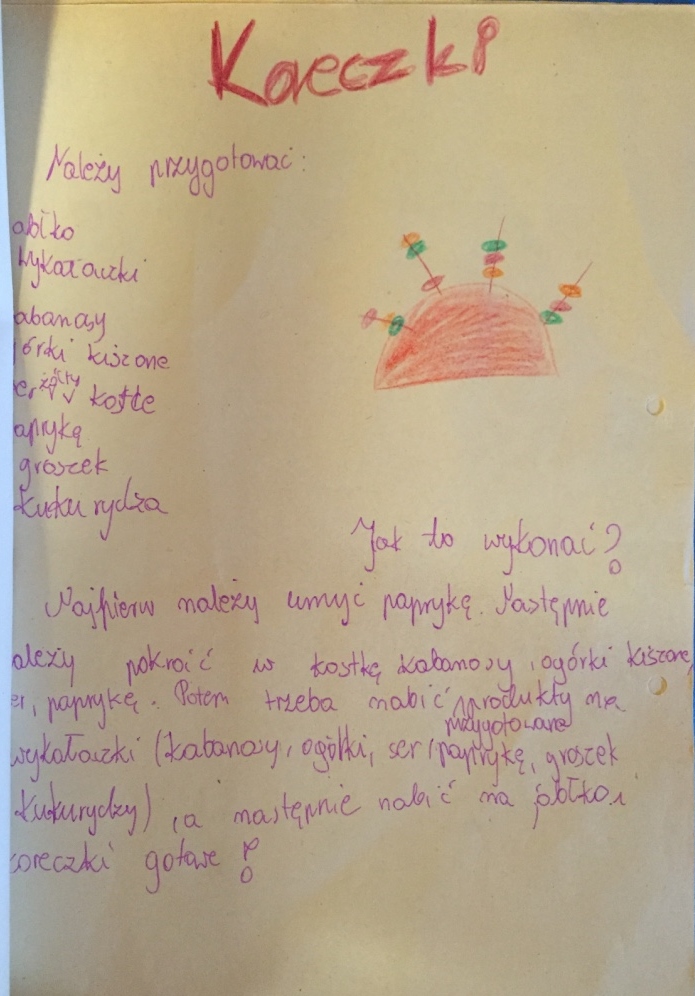 Koreczki
Należy przygotować:
abłko
wykałaczki
abanosy
órki kiszone
er żółty kostę
aprykę
groszek
kukurydza
Jak to wykonać?
Najpierw należy umyć paprykę. Następnie
ależy pokroić w kostkę kabanosy, ogórki kiszone,
er, paprykę. Potem trzeba nabić produkty na
przygotowane
wykałaczki (kabanosy, ogórki, ser, paprykę, groszek
kukurydzy), a następnie nabić na jabłko.
oreczki gotowe!